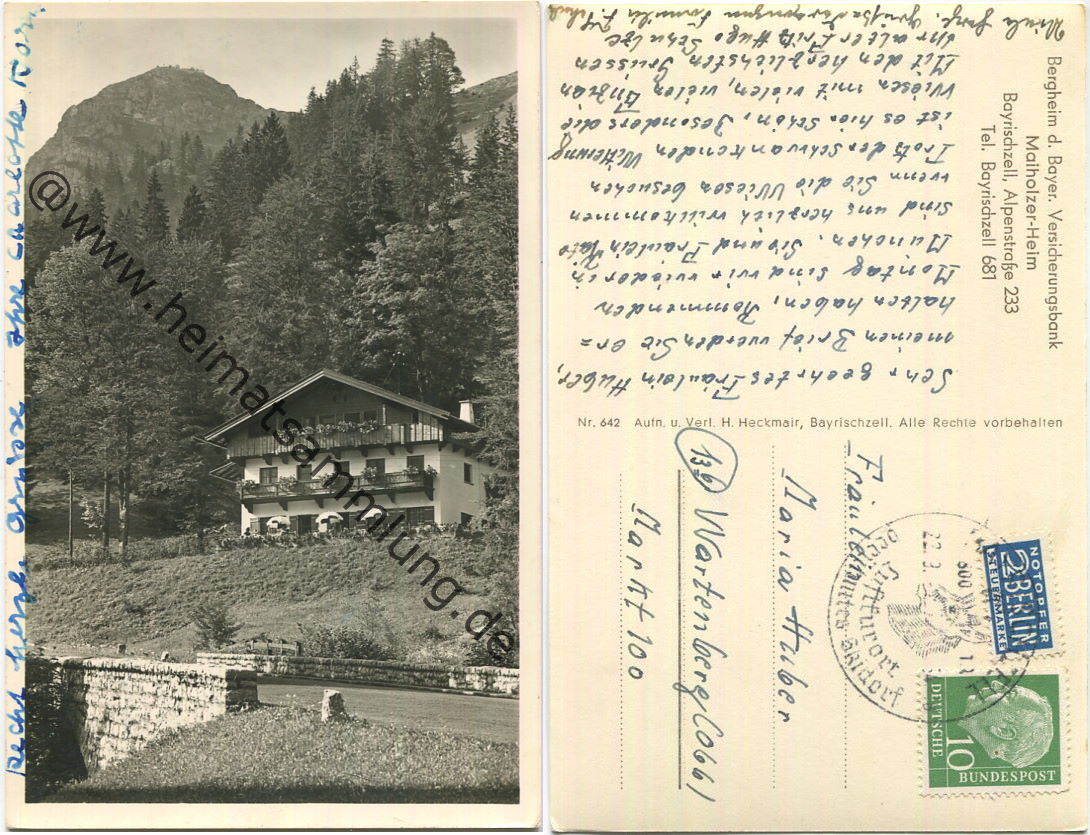 Recht herzl. Grüsse Ihre Charlotte Korn.
@www.heimatsammlung.de
Bergheim d. Bayer. Versicherungsbank
Maiholzer-Heim
Bayrischzell, Alpenstraße 233
Tel. Bayrischzell 681
Sehr geehrtes Fräulein Huber,
meinen Brief werden Sie er=
halten haben, Kommenden
Montag sind wir wieder in
München. Sie und Fräulein Kati
sind uns herzlich willkommen
wenn Sie die Wiesen besuchen
Trotz der schwankenden Witterung
ist es hier schön, besonders die
Wiesen mit vielen, vielen Enzian
Mit den herzlichsten Grüssen
Ihr alter Fritz Hugo Schulze
Nr. 642 Aufn. u. Verl. H. Heckmair, Bayrischzell. Alle Rechte vorbehalten
Fräulein
Maria Huber
(13b) Wartenberg/Obb/
Markt 100
22.9.
800
Luftkurort
Skidorf
NOTOPFER
2 BERLIN
STEUERMARKE
DEUTSCHE
10
BUNDESPOST